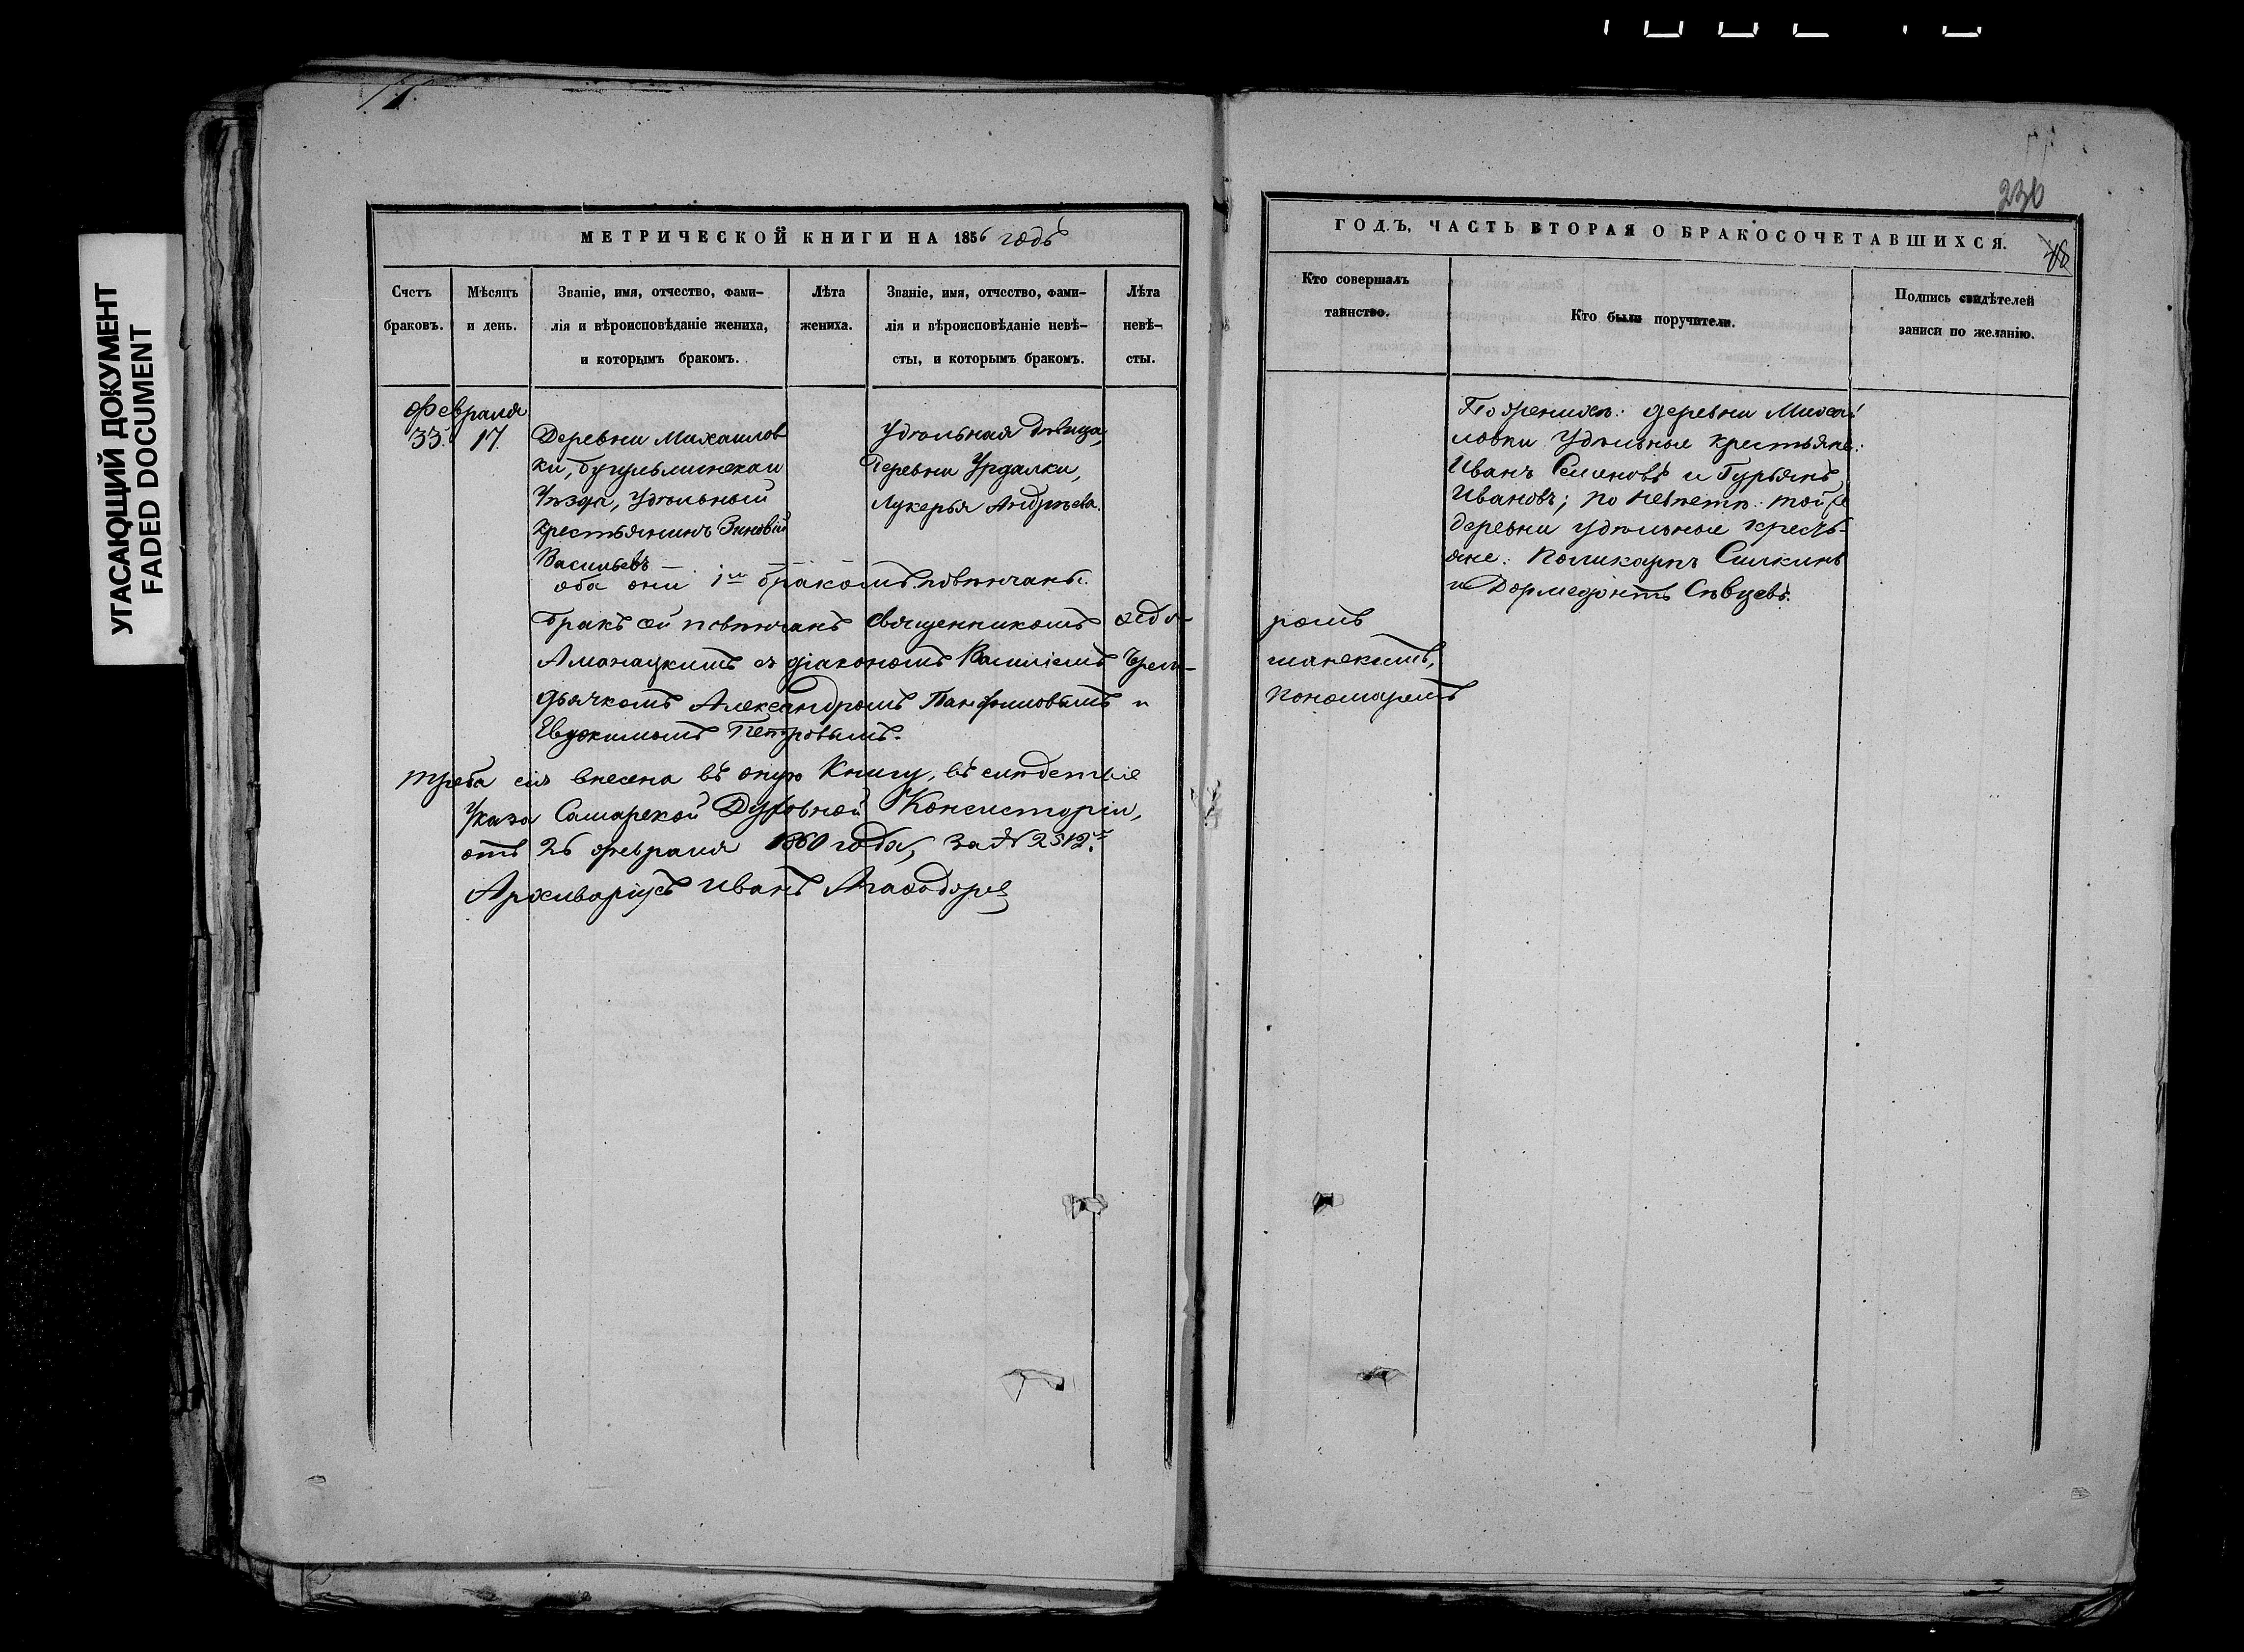 УГАСАЮЩИЙ ДОКУМЕНТ
FADED DOCUMENT
МЕТРИЧЕСКОЙ КНИГИ НА 1856 годъ
Счетъ браковъ.
Мѣсяцъ и день.
Званіе, имя, отчество, фами-
лія и вѣроисповѣданіе жениха,
и которымъ бракомъ.
Лѣта жениха.
Званіе, имя, отчество, фами-
лія и вѣроисповѣданіе невѣ-
сты, и которымъ бракомъ.
Лѣта невѣ-
сты.
Февраля
33. 17.
Деревни Михаилов
ки, бугульминскаи
Уѣзда, Удѣльный
крестьянинъ Зиновій
Васильевъ
Удѣльная дѣвица,
Деревни Урдалки,
Лукерья Андрѣева.
оба они 1м бракомъ повѣнчаны.
Бракъ сей повѣнчанъ Священникомъ Ѳедо-
Аманацкимъ съ діакономъ Василіемъ Врем-
дьячкомъ Александромъ Панфиловымъ и
Евдокимомъ Петровымъ.
Треба сія внесена въ оную Книгу, въ слѣдствіе
Указа Самарской Духовной Консисторіи,
отъ 26 февраля 1860 года, за № 2512.
Архиваріусъ Иванъ
230
ГОДЪ, ЧАСТЬ ВТОРАЯ О БРАКОСОЧЕТАВШИХСЯ.
Кто совершалъ
таинство.
Кто были поручители.
Подпись свидѣтелей
записи по желанію.
По женихѣ: деревни Михаи
ловки Удѣльные крестьяне:
Иванъ Семеновъ и Гурьянъ
Ивановъ; по невѣстѣ: той же
деревни удѣльные кресть-
яне: Поликарпъ Силкинъ
и Дормедонтъ Сѣвцевъ.
ромъ
шанскимъ,
пономаремъ